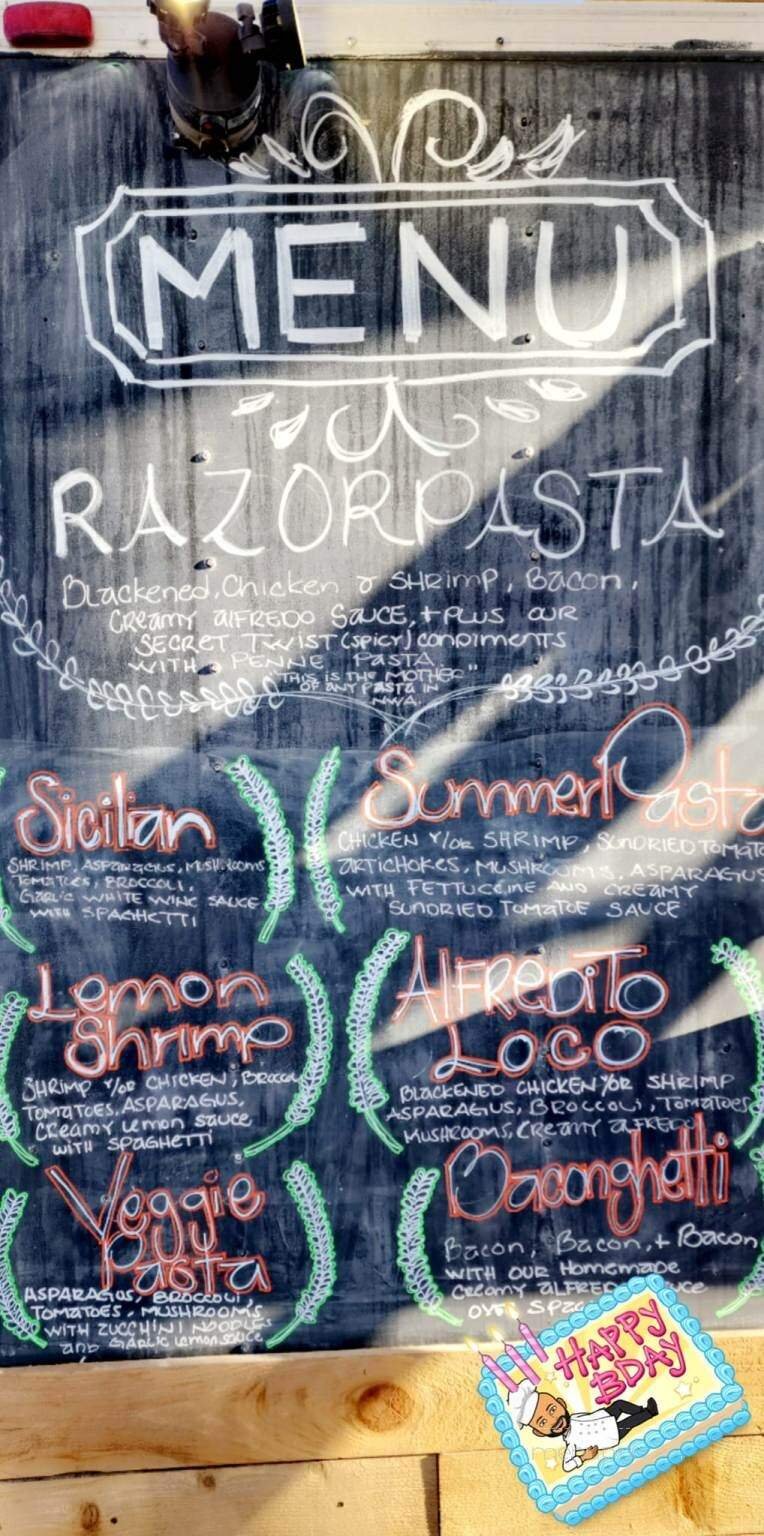 MENU
RAZORPASTA
Blackened, Chicken & SHRimp, Bacon,
Creamy alFREDO SAUCE, + PLUS OUR
SECRET TWIST (SPICY) CONDIMENTS
WITH PENNE PASTA
"THIS IS THE MOTHER"
OF ANY PASTA IN
NWA.
Sicilian
SHRIMP, ASPARAGUS, MUSHROOMS
TOMATOES, BROCCOLI,
GARLIC WHITE WINE SAUCE
WITH SPAGHETTI
Summer Pasta
CHICKEN Y/OR SHRIMP, SUNDRIED TOMATO
ARTICHOKES, MUSHROOMS, ASPARAGUS
WITH FETTUCCINE AND CREAMY
SUNDRIED TOMATOE SAUCE
Lemon
Shrimp
SHRIMP Y/OR CHICKEN, BROCCOLI
TOMATOES, ASPARAGUS,
CREAMY LEMON SAUCE
WITH SPAGHETTI
AlFREDiTo
Loco
BLACKENED CHICKEN Y/OR SHRIMP
ASPARAGUS, BROCCOLI, TOMATOES
MUSHROOMS, CREAMY ALFREDO
Veggie
Pasta
ASPARAGUS, BROCCOLI,
TOMATOES, MUSHROOMS
WITH ZUCCHINI NOODLES
and GARLIC Lemon sauce
Baconghetti
Bacon, Bacon, + Bacon
WITH OUR Homemade
CREAMY ALFREDO
OVER
HAPPY
BDAY